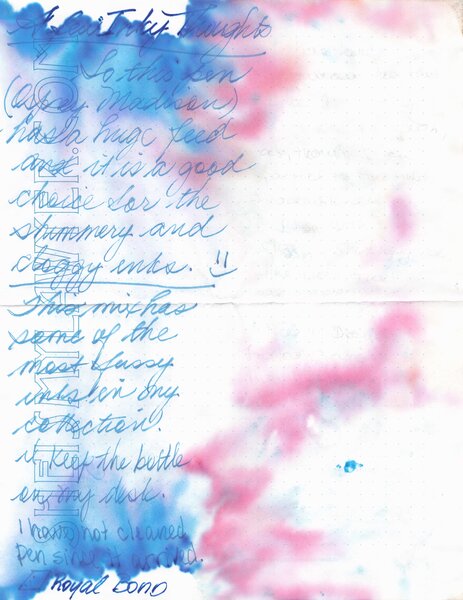 A Few Inky Thoughts
So this pen
(Opus Madison)
has a huge feed
and it is a good
choice for the
shimmery and
cloggy inks.
This mix has
some of the
most fussy
inks in my
collection.
I keep the bottle
on my desk.
I have not cleaned
pen since it arrived.
Royal Bond